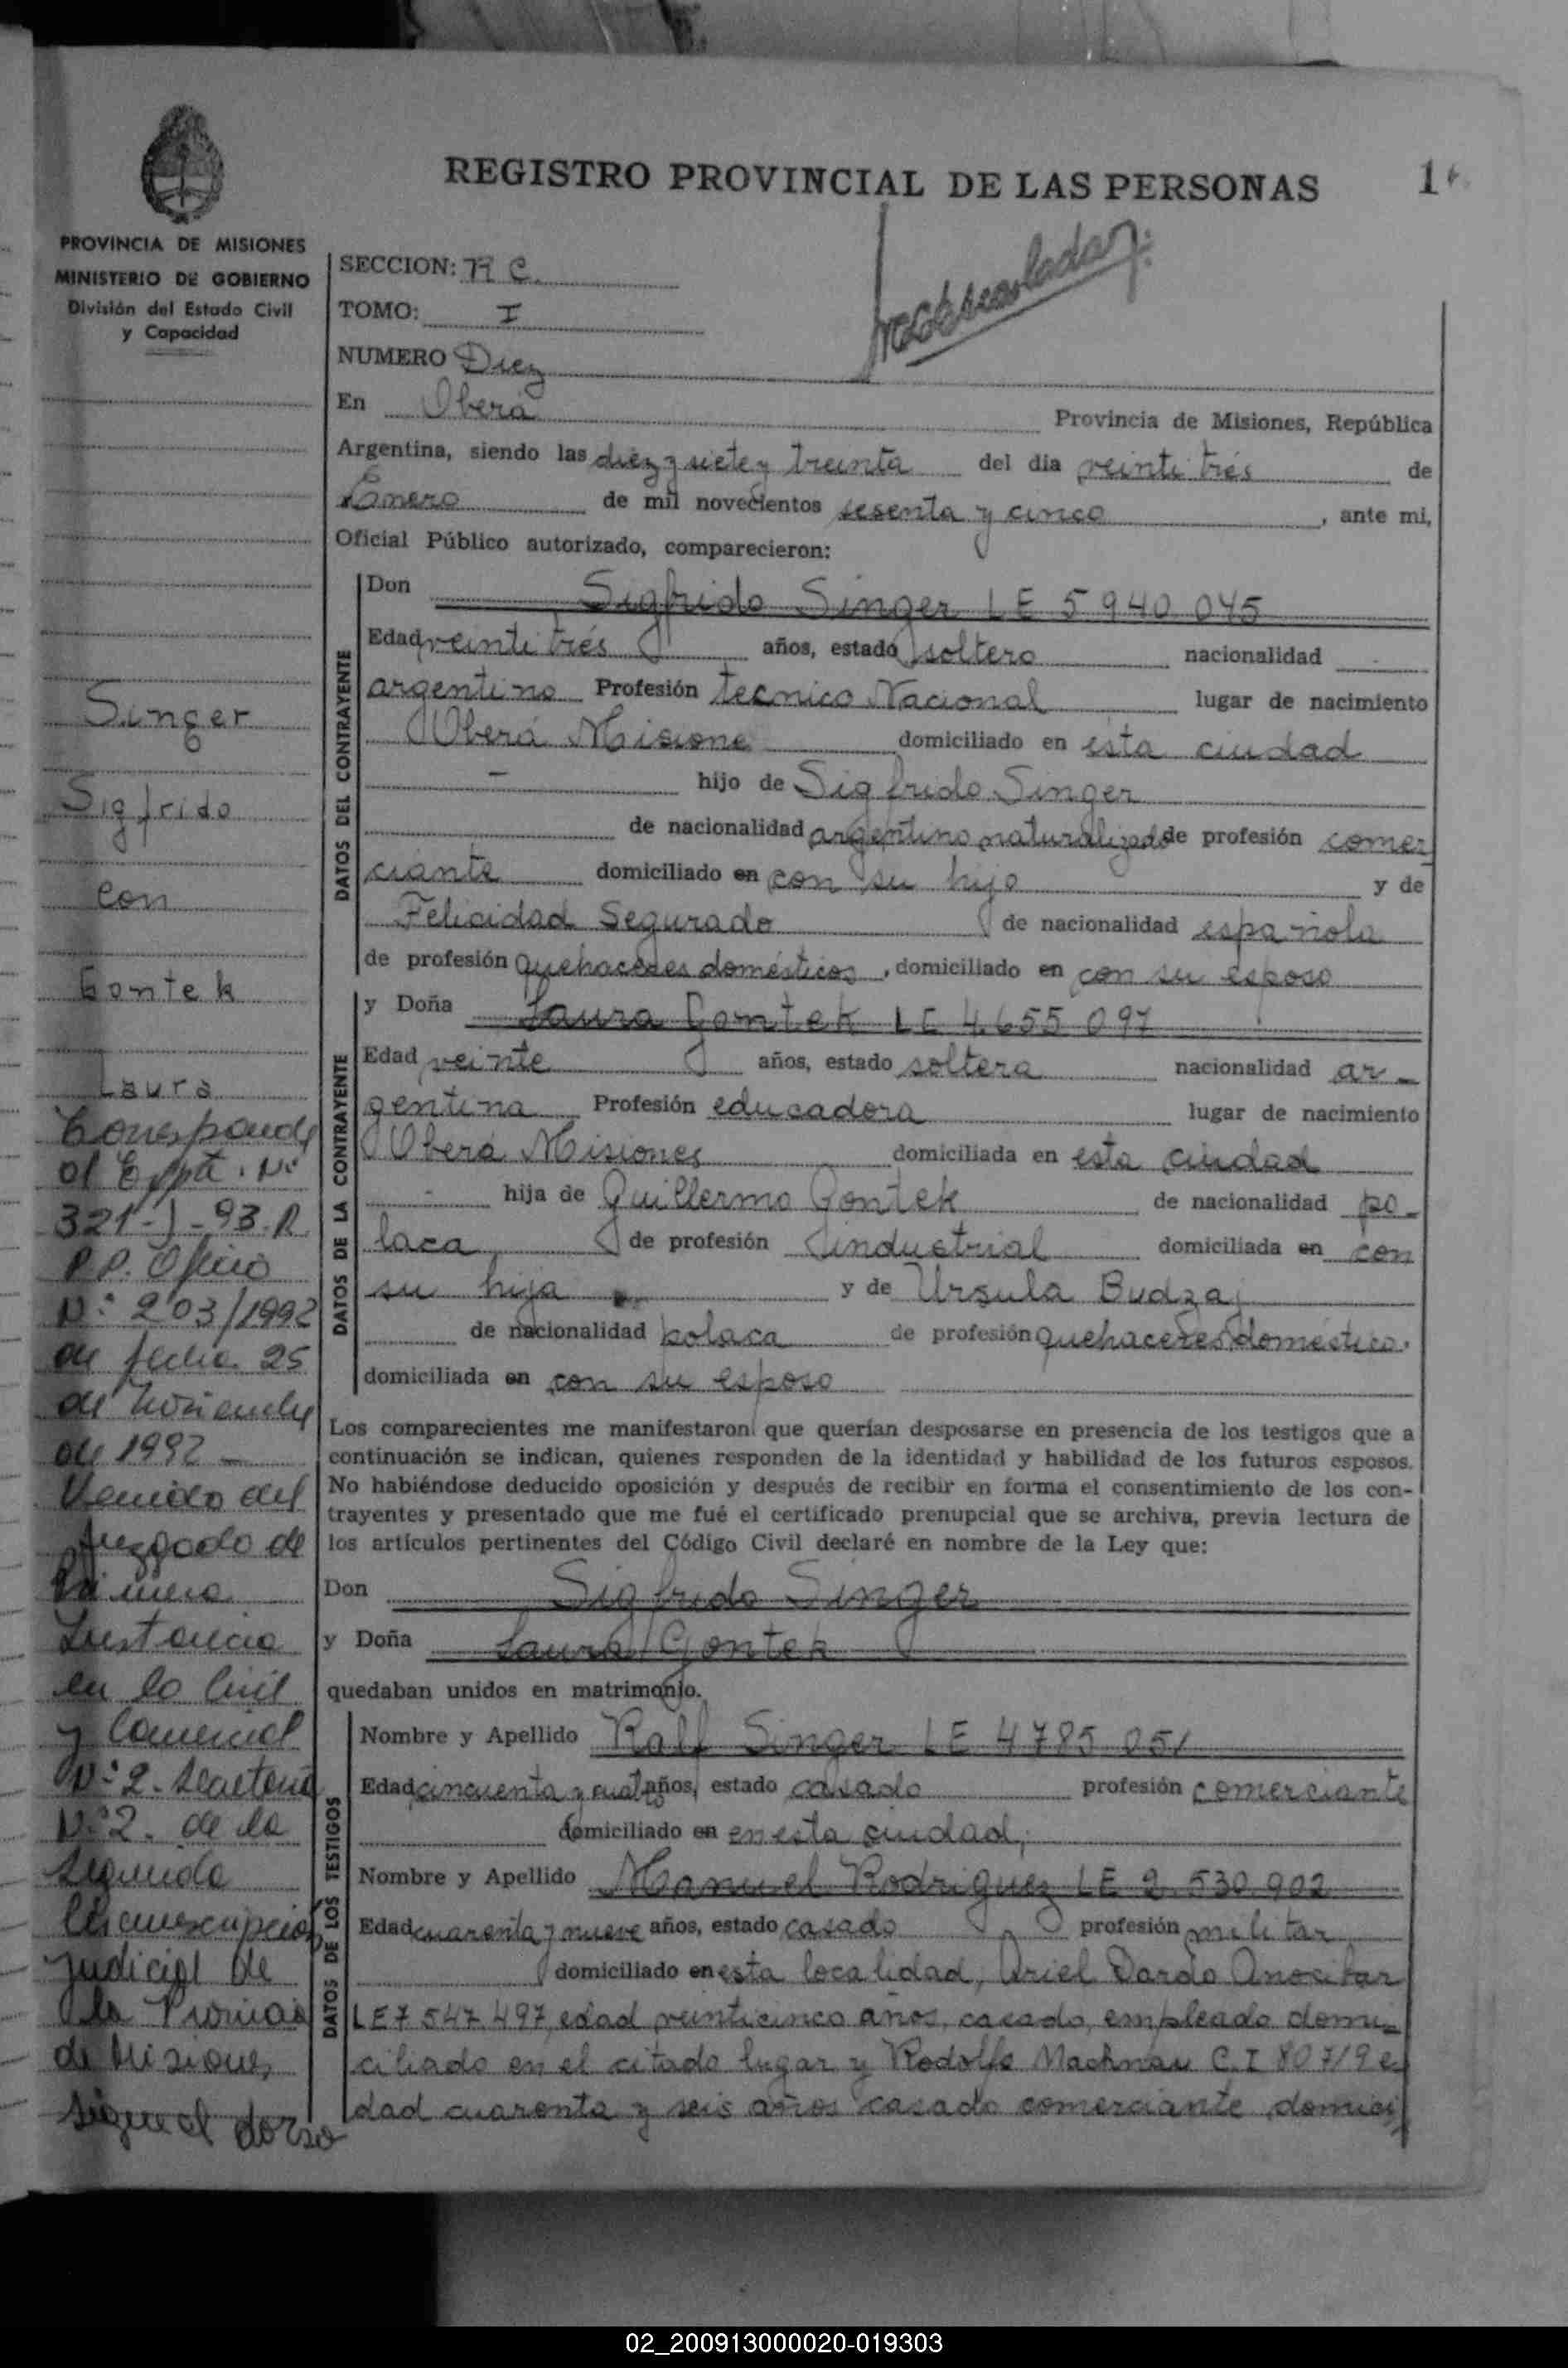 REGISTRO PROVINCIAL DE LAS PERSONAS
PROVINCIA DE MISIONES
MINISTERIO DE GOBIERNO
División del Estado Civil
y Capacidad
SECCION:
TOMO: I
NUMERO Diez
En Oberá Provincia de Misiones, República
Argentina, siendo las diez y siete y treinta del dia veinti trés de
Enero de mil novecientos sesenta y cinco, ante mi,
Oficial Público autorizado, comparecieron:
DATOS DEL CONTRAYENTE
Don Sigfrido Singer LE 5 940 045
Edad veinti trés años, estado soltero nacionalidad
argentino Profesión tecnico Nacional lugar de nacimiento
Oberá Misione domiciliado en esta ciudad
- hijo de Sigfrido Singer
de nacionalidad argentino naturalizado de profesión comer
ciante domiciliado en con su hijo y de
Felicidad Segurado de nacionalidad española
de profesión quehaceres domésticos, domiciliado en con su esposo
DATOS DE LA CONTRAYENTE
y Doña Laura Gontek LC 4.655 097
Edad veinte años, estado soltera nacionalidad ar-
gentina Profesión educadora lugar de nacimiento
Oberá Misiones domiciliada en esta ciudad
- hija de Guillermo Gontek de nacionalidad po-
laca de profesión industrial domiciliada en con
su hija y de Ursula Budzaj
de nacionalidad polaca de profesión quehaceres doméstico.
domiciliada en con su esposo
Los comparecientes me manifestaron que querían desposarse en presencia de los testigos que a
continuación se indican, quienes responden de la identidad y habilidad de los futuros esposos.
No habiéndose deducido oposición y después de recibir en forma el consentimiento de los con-
trayentes y presentado que me fué el certificado prenupcial que se archiva, previa lectura de
los artículos pertinentes del Código Civil declaré en nombre de la Ley que:
Don Sigfrido Singer
y Doña Laura Gontek
quedaban unidos en matrimonio.
DATOS DE LOS TESTIGOS
Nombre y Apellido Ralf Singer LE 4 785 051
Edad cincuenta y cuatro años, estado casado profesión comerciante
domiciliado en en esta ciudad,
Nombre y Apellido Manuel Rodriguez LE 2 530 902
Edad cuarenta y nueve años, estado casado profesión militar
domiciliado en esta localidad, Ariel Dardo
LE 7 547 497, edad veinticinco años, casado, empleado domi-
ciliado en el citado lugar y Rodolfo Machnau C.I 80719 e
dad cuarenta y seis años casado comerciante domici
Singer
Sigfrido
con
Gontek
Laura
Corresponde
al Expte. Nº
321-J-93.R
P.P. Oficio
Nº 203/1992
de fecha 25
de Noviembre
de 1992 -
Venido del
Juzgado de
Primera
Instancia
en lo Civil
y Comercial
Nº 2. Secretaria
Nº 2. de la
Segunda
Circunscripción
Judicial de
la Provincia
de Misiones,
sigue al dorso
02_200913000020-019303